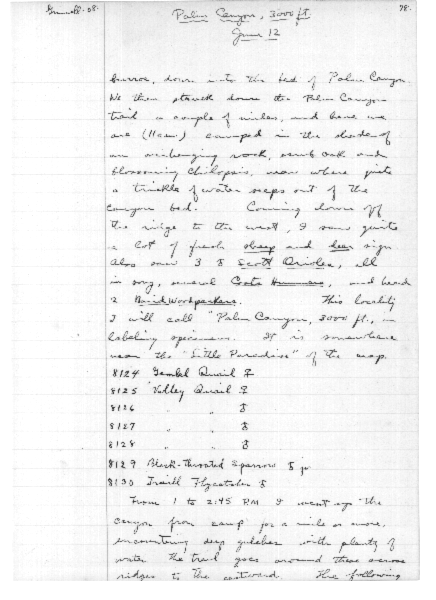 Grinnell-08.
Palm Canyon, 3000 ft.
78.
June 12
burros, down into the bed of Palm Canyon.
We then struck down the Palm Canyon
trail a couple of miles, and here we
are (11 a.m.) camped in the shade of
an overhanging rock, scrub oak and
blossoming Chilopsis, near where quite
a trickle of water seeps out of the
canyon bed. Coming down off
the ridge to the west, I saw quite
a lot of fresh sheep and deer sign
Also saw 3 ♂ Scott Orioles, all
in song, several Costa Hummers, and heard
2 Woodpeckers. This locality
I will call "Palm Canyon, 3000 ft., in
labeling specimens. It is somewhere
near the "Little Paradise" of the map.
8124 Gambel Quail ♀
8125 Valley Quail ♀
8126 " " ♂
8127 " " ♂
8128 " " ♂
8129 Black-throated Sparrow ♂ jv
8130 Traill Flycatcher ♂
From 1 to 2:45 PM I went up the
canyon from camp for a mile or more,
encountering deep gulches with plenty of
water the trail goes around these across
ridges to the eastward. The following